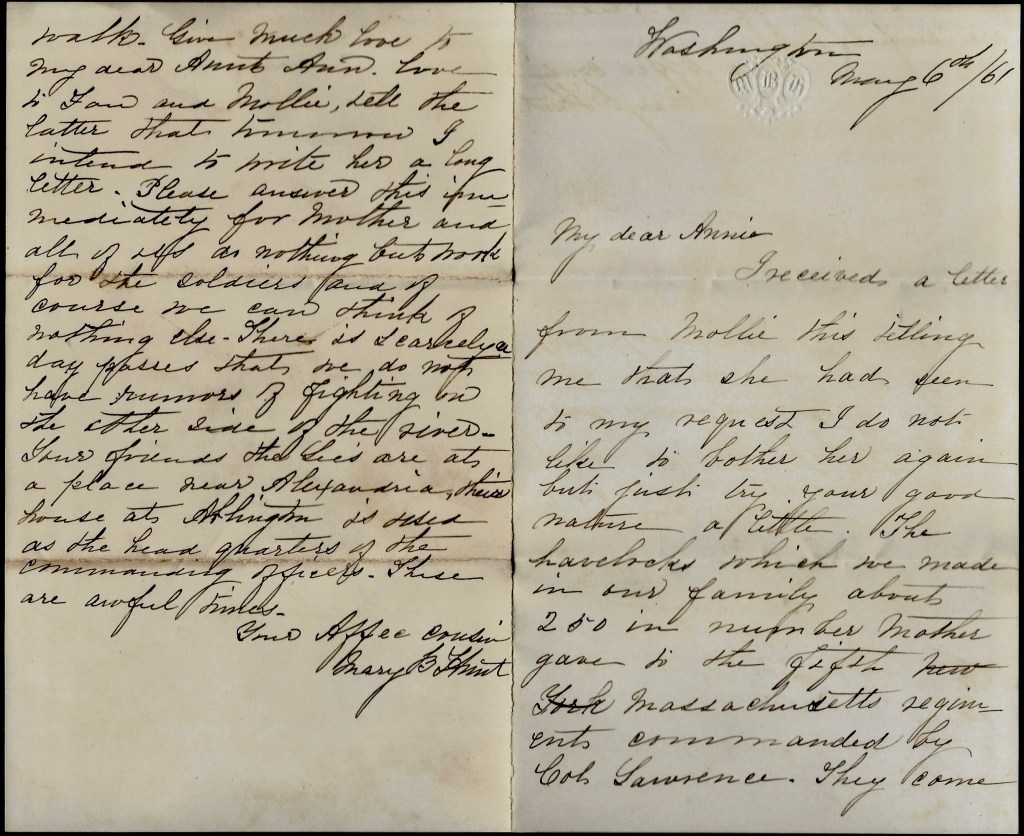 Washington
May 6th/61
My dear Annie
I received a letter
from Mollie this telling
me that she had seen
to my request I do not
like to bother her again
but just try your good
nature a little. The
havelocks which we made
in our family about
250 in number Mother
gave to the fifth New
York Massachusetts regim-
ents commanded by
Col. Lawrence. They come
walk. Give much love to
my dear Aunt Ann. Love
to You and Mollie, tell the
latter that tomorrow I
intend to write her a long
letter. Please answer this imm-
mediately for Mother and
all of us do nothing but work
for the soldiers and of
course we can think of
nothing else. There is scarcely a
day passes that we do not
have rumors of fighting on
the other side of the river-
Your friends the Lees are at
a place near Alexandria, their
house at Arlington is used
as the head quarters of the
commanding officers. These
are awful times.
Your Affec cousin
Mary B Hunt